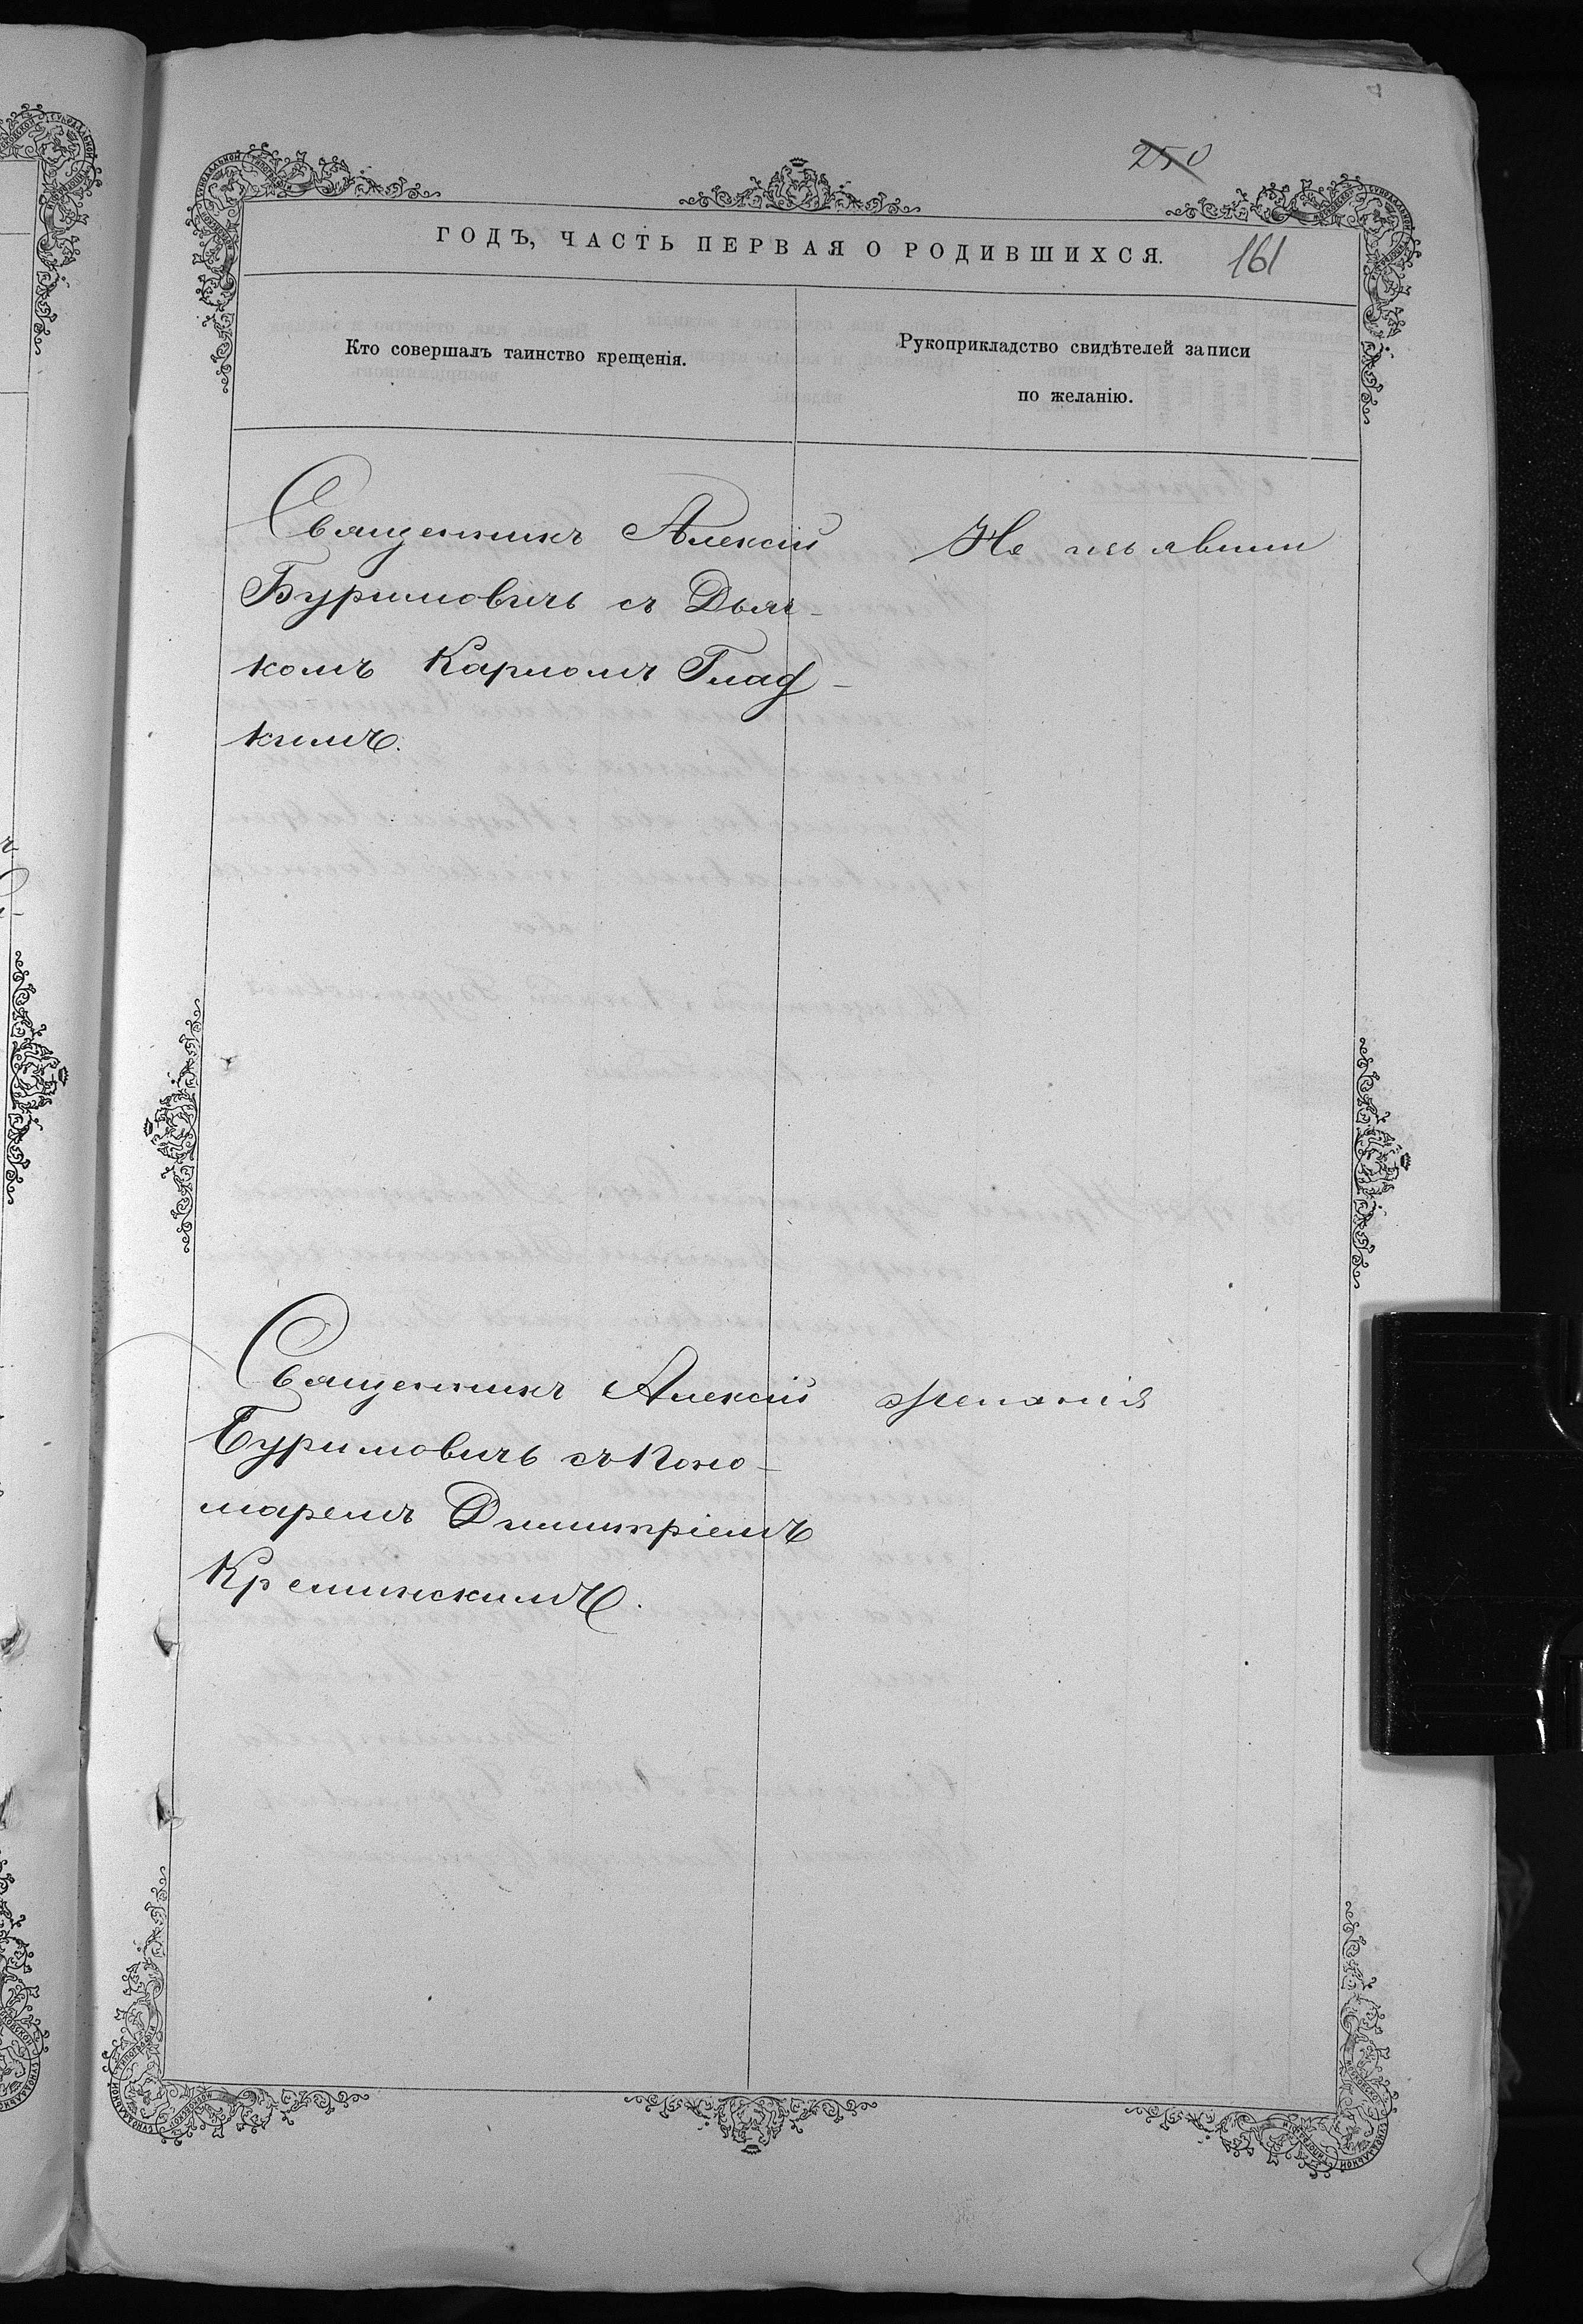 250
ГОДЪ, ЧАСТЬ ПЕРВАЯ О РОДИВШИХСЯ.
161
Кто совершалъ таинство крещенія.
Рукоприкладство свидѣтелей записи
по желанію.
Священникъ Алексій
Буримовичь съ Дьяч-
комъ Карпомъ Глад-
кимъ.
Не изъявили
Священникъ Алексій
Буримовичь съ Поно-
маремъ Димитріемъ
Креминскимъ.
желанія